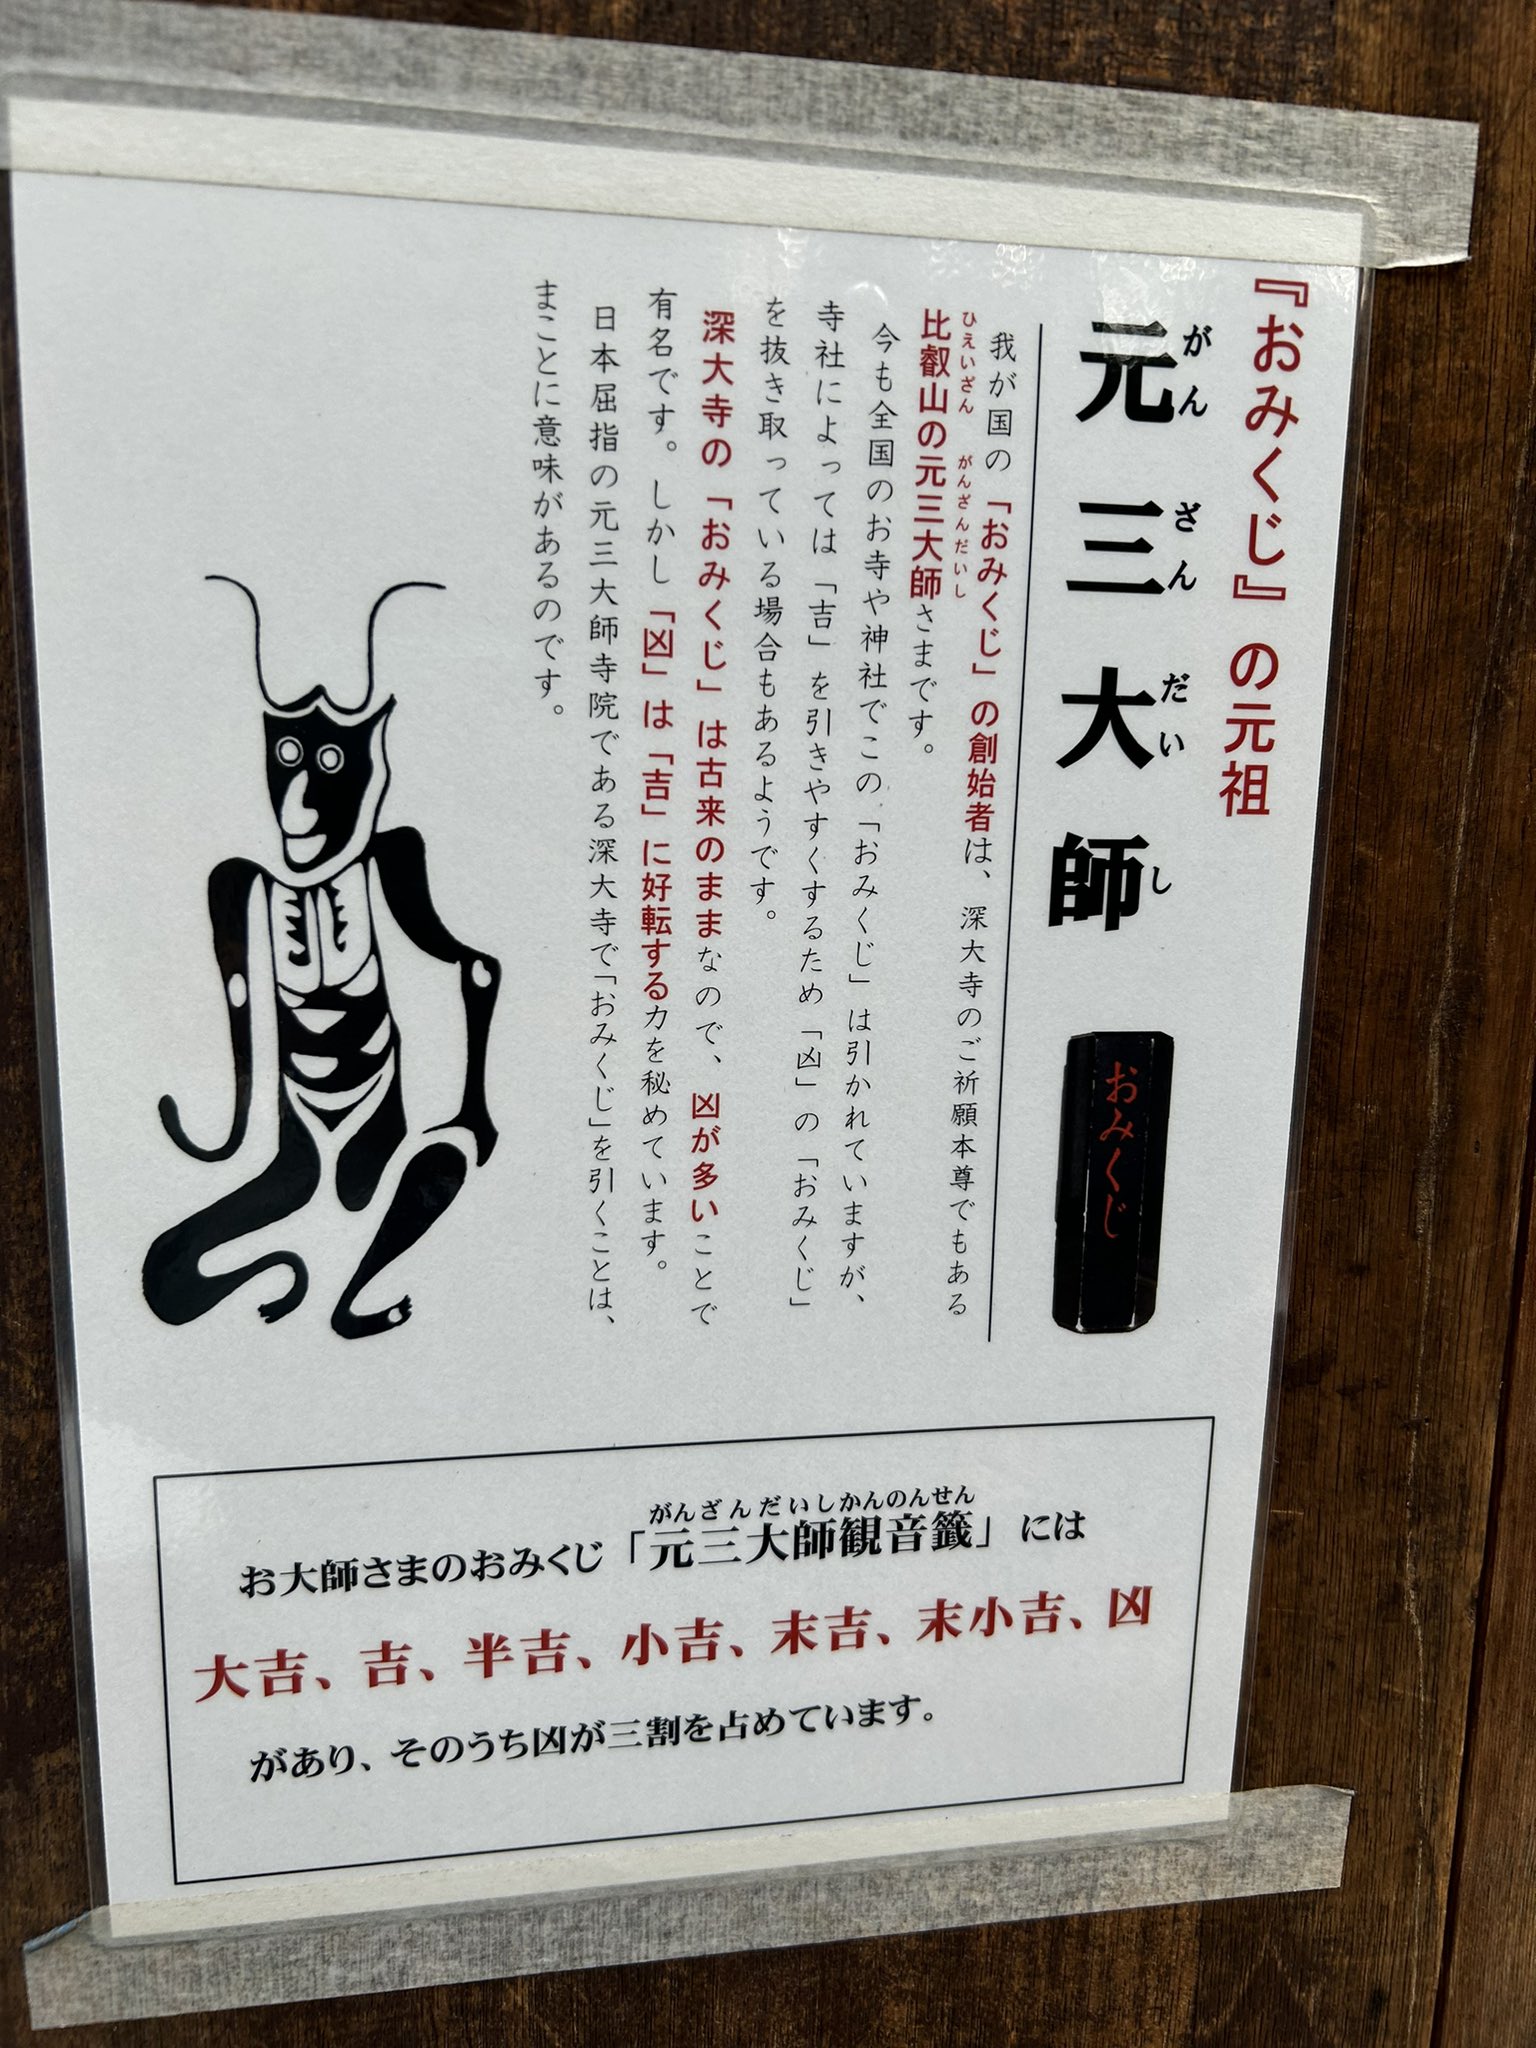 『おみくじ』の元祖
元三大師
がんざんだいし
おみくじ
我が国の「おみくじ」の創始者は、深大寺のご祈願本尊でもある
比叡山の元三大師さまです。
ひえいざん がんざんだいし
今も全国のお寺や神社でこの「おみくじ」は引かれていますが、
寺社によっては「吉」を引きやすくするため「凶」の「おみくじ」
を抜き取っている場合もあるようです。
深大寺の「おみくじ」は古来のままなので、凶が多いことで
有名です。しかし「凶」は「吉」に好転する力を秘めています。
日本屈指の元三大師寺院である深大寺で「おみくじ」を引くことは、
まことに意味があるのです。
がんざんだいしかんのんせん
お大師さまのおみくじ「元三大師観音籤」には
大吉、吉、半吉、小吉、末吉、末小吉、凶
があり、そのうち凶が三割を占めています。